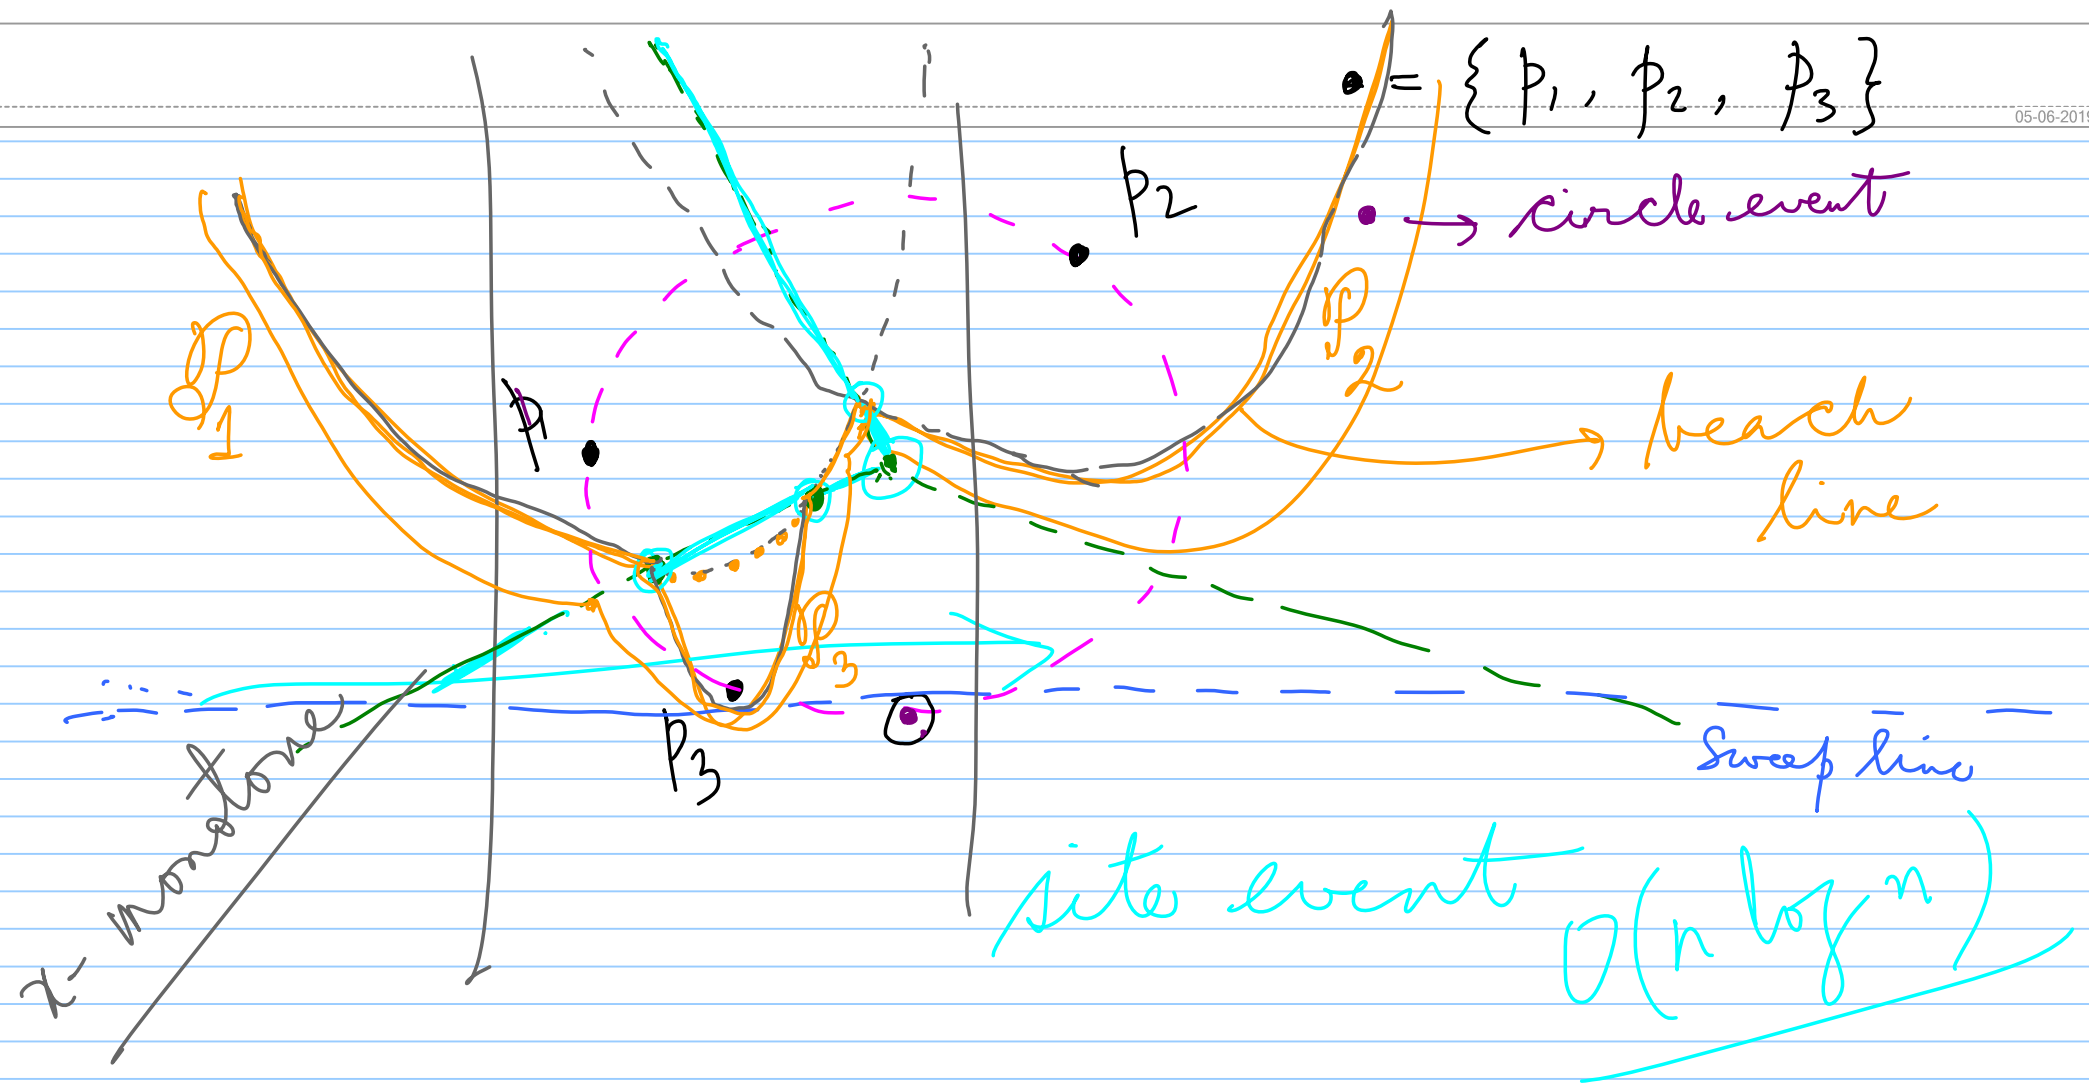 = { p1, p2, p3 }
05-06-2019
p2
→ circle event
P1
P2
P1
beach
line
P3
p3
sweep line
x-monotone
site event
O(n log n)